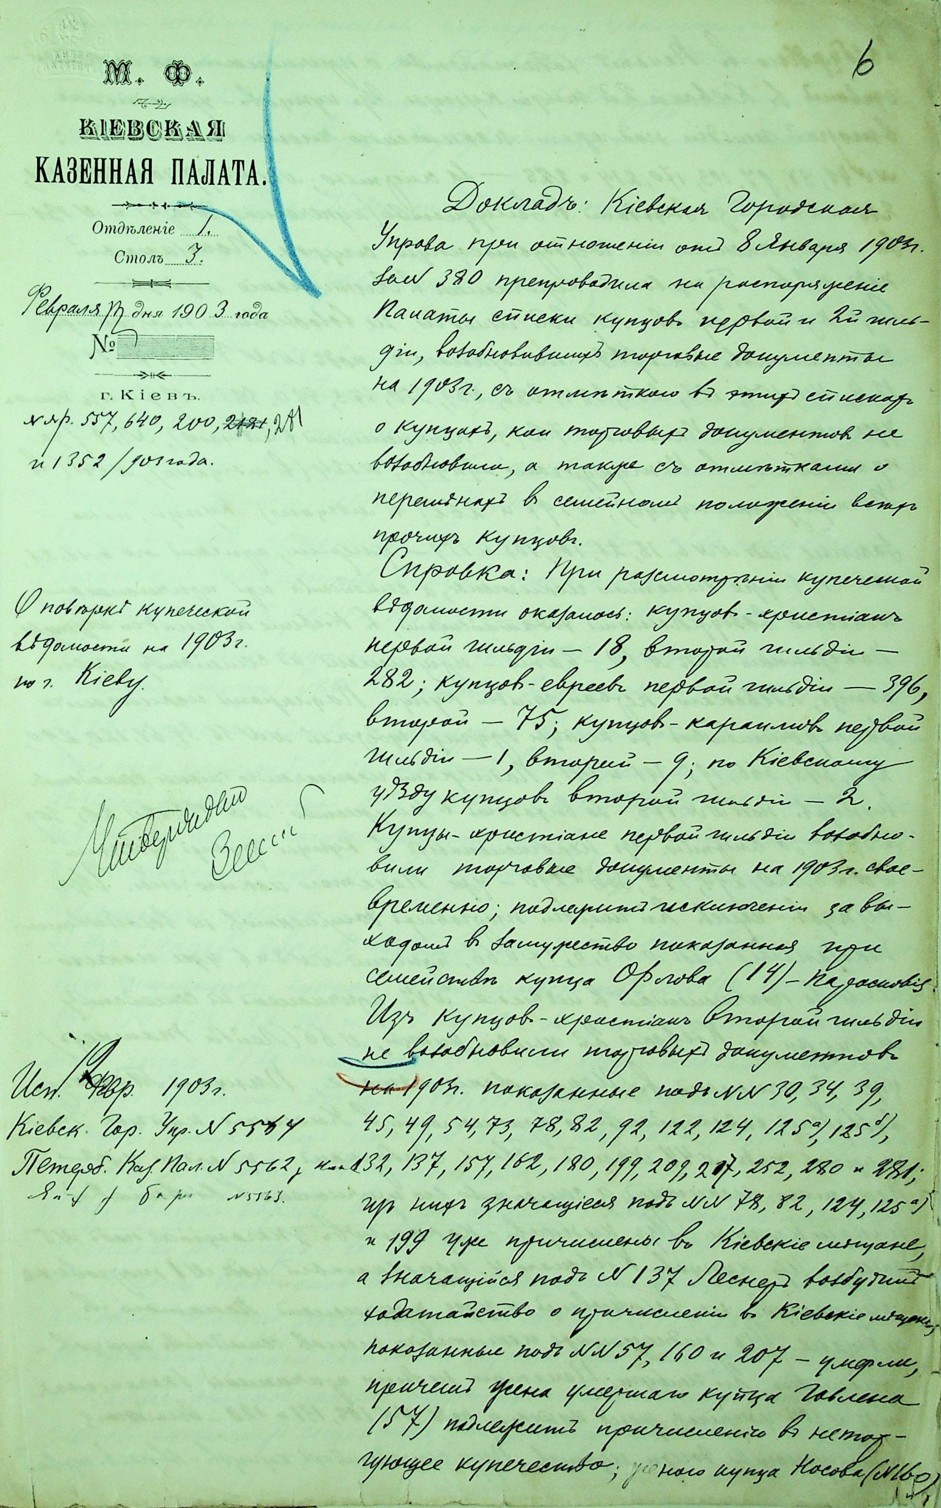 6
М. Ф.
КІЕВСКАЯ
КАЗЕННАЯ ПАЛАТА.
Отдѣленіе 1.
Столъ 3.
Февраля 17 дня 1903 года
№
г. Кіевъ.
557, 640, 200, 281
и 1352 / 903 года.
О повѣркѣ купеческой
вѣдомости на 1903 г.
по г. Кіеву.
Исп. 19 1903 г.
Кіевск. Гор. Упр. N 5564
Петерб. Каз. Пал. N 5562,
N 5563.
Докладъ: Кіевская Городская
Управа при отношеніи отъ 8 Января 1903 г.
за N 380 препроводила на распоряженіе
Палаты списки купцовъ первой и 2й гиль-
діи, возобновившихъ торговые документы
на 1903 г., съ отмѣткою въ этихъ спискахъ
о купцахъ, кои торговыхъ документовъ не
возобновили, а также съ отмѣтками о
перемѣнахъ въ семейномъ положеніи всѣхъ
прочихъ купцовъ.
Справка: При разсмотрѣніи купеческой
вѣдомости оказалось: купцовъ-христіанъ
первой гильдіи — 18, второй гильдіи —
282; купцовъ-евреевъ первой гильдіи — 396,
второй — 75; купцовъ-караимовъ первой
гильдіи — 1, второй — 9; по Кіевскому
уѣзду купцовъ второй гильдіи — 2.
Купцы-христіане первой гильдіи возобно-
вили торговые документы на 1903 г. свое-
временно; подлежитъ исключенію за вы-
ходомъ въ замужество показанная при
семействѣ купца Орлова (14) — Парасковія.
Изъ купцовъ-христіанъ второй гильдіи
не возобновили торговыхъ документовъ
на 1903 г. показанные подъ NN 30, 34, 39,
45, 49, 54, 73, 78, 82, 92, 122, 124, 125а), 125б),
132, 137, 157, 162, 180, 199, 209, 217, 252, 280 и 281;
изъ нихъ значащіеся подъ NN 78, 82, 124, 125а)
и 199 уже причислены въ Кіевскіе мѣщане,
а значащійся подъ N 137 возбудилъ
ходатайство о причисленіи въ Кіевскіе мѣщане;
показанные подъ NN 57, 160 и 207 — умерли,
причемъ жена умершаго купца
(57) подлежитъ причисленію въ неторг-
ующее купечество; жена купца Носова (N 160)